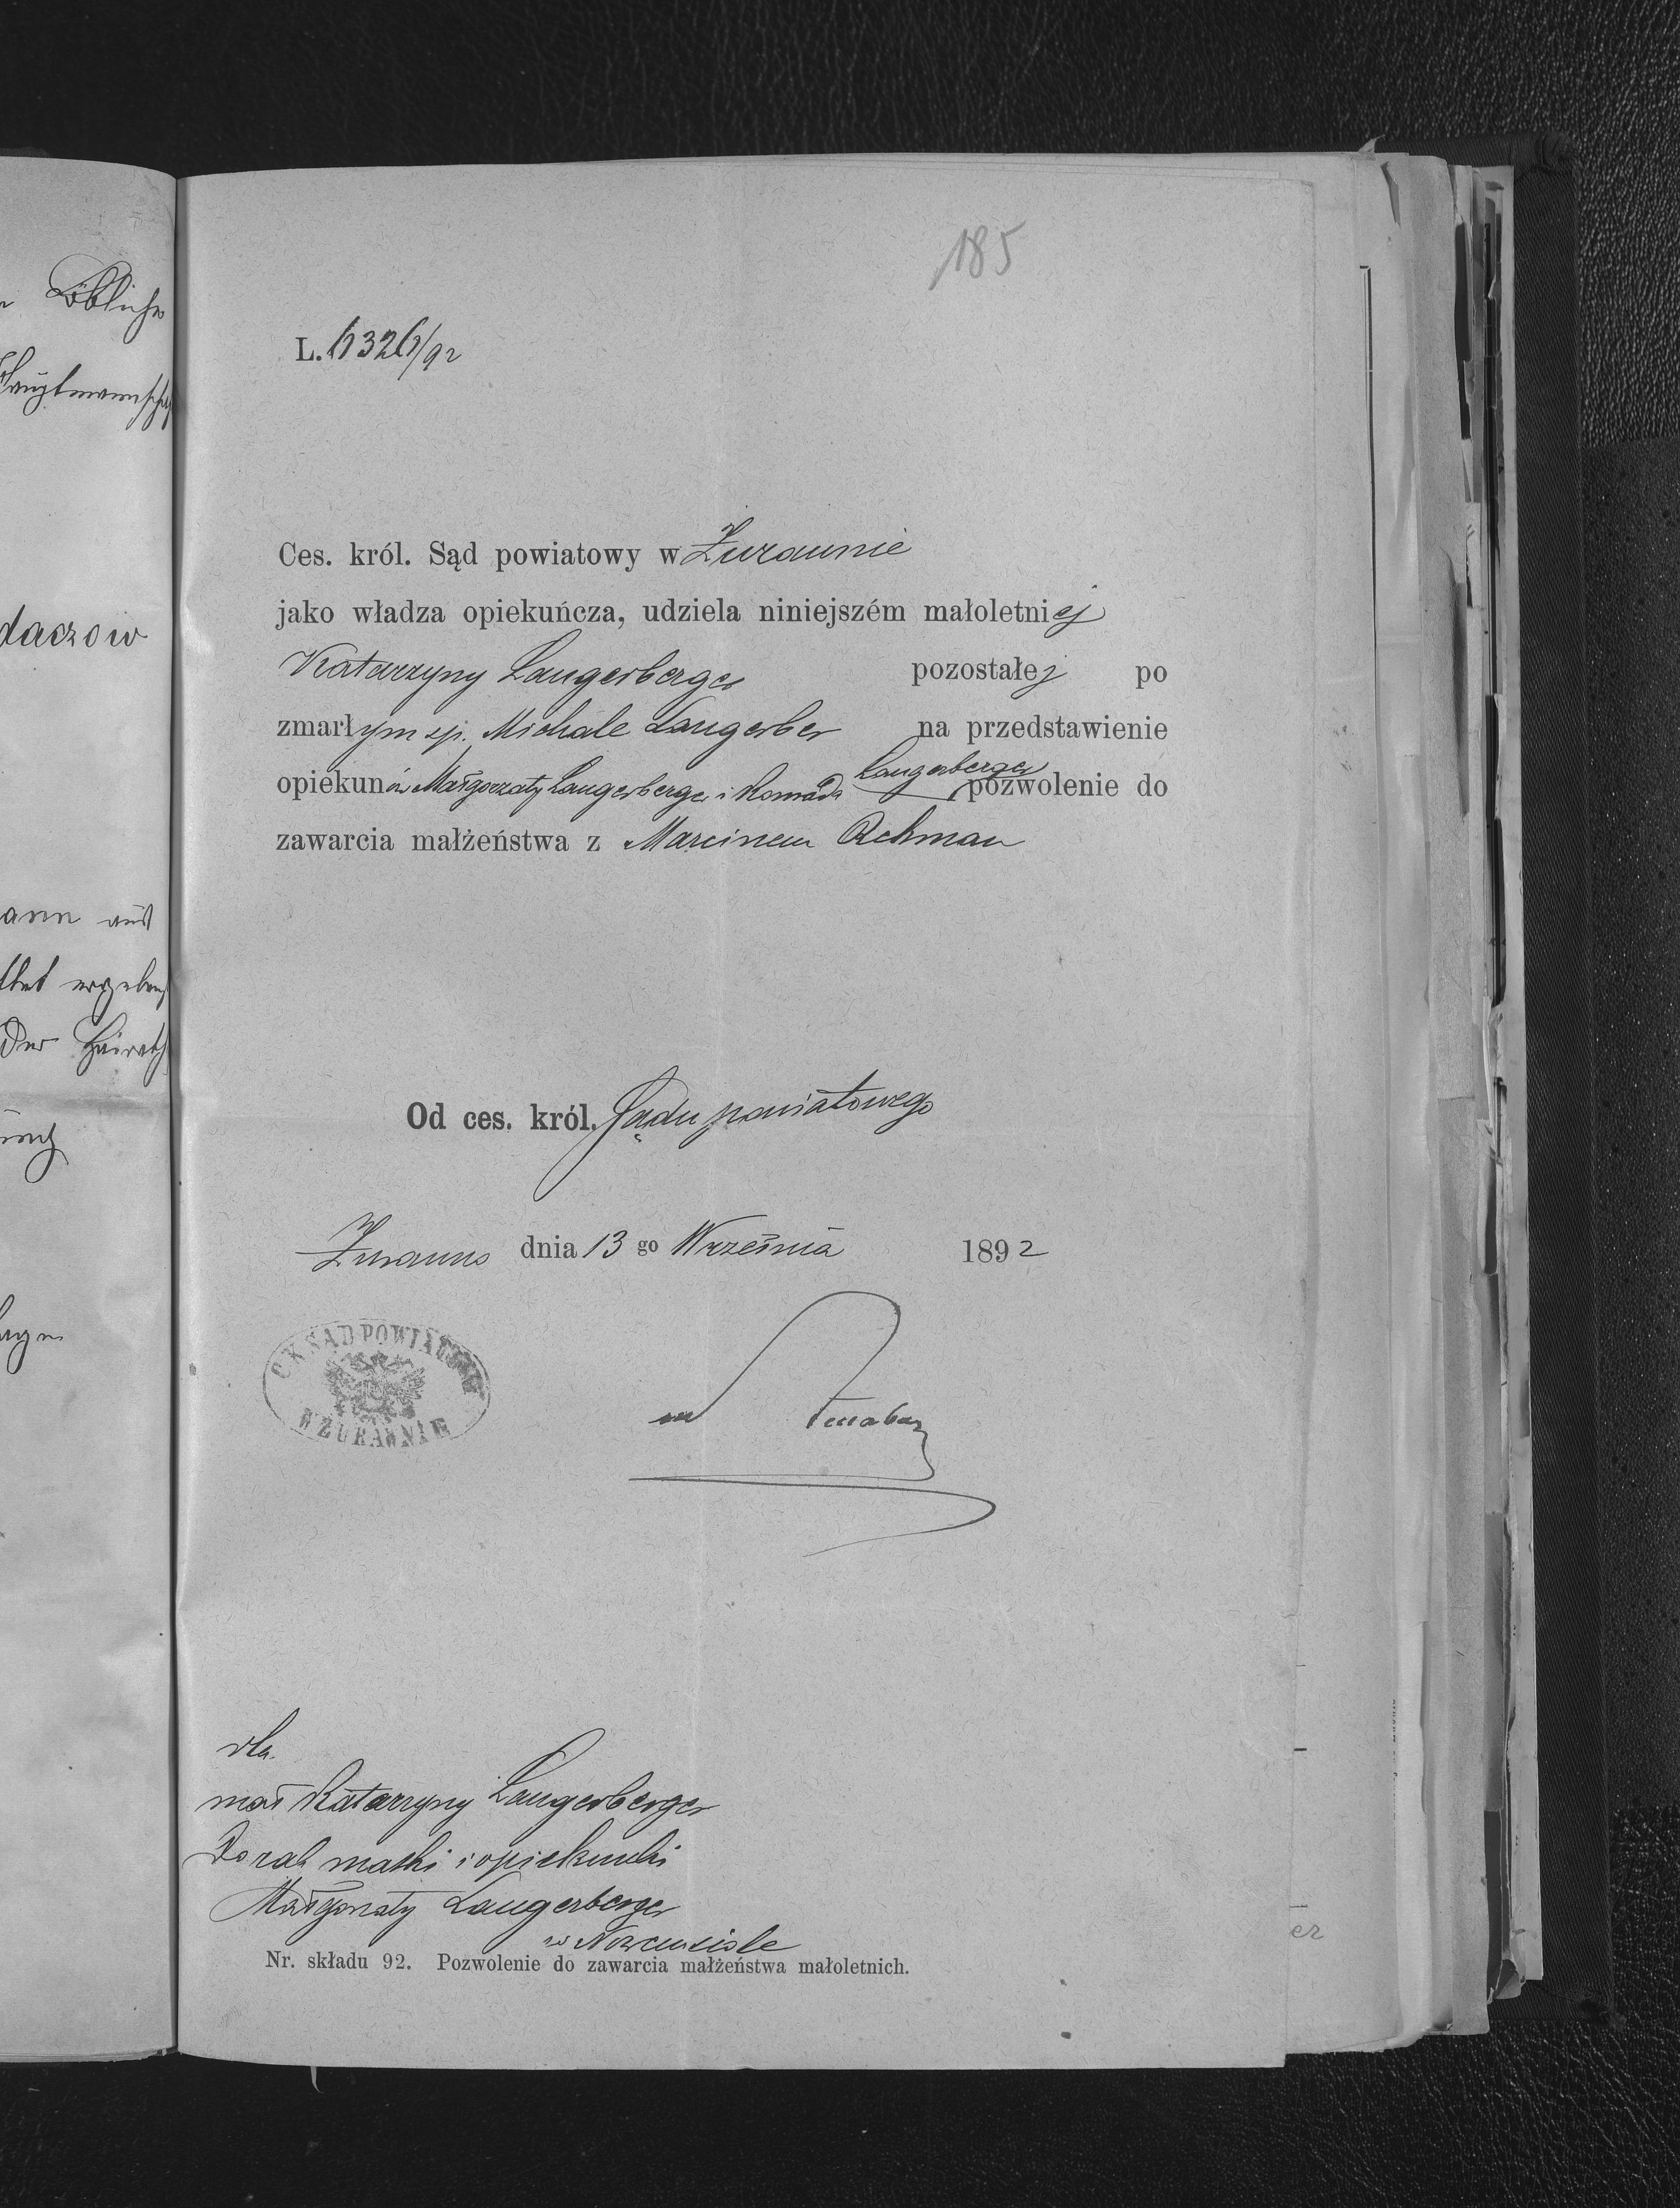 185
L. 6326/92
Ces. król. Sąd powiatowy w Żurawnie
jako władza opiekuńcza, udziela niniejszém małoletniej
Katarzyny Laugerberger pozostałej po
zmarłym śp. Michale Laugerber na przedstawienie
opiekunów Małgorzaty Laugerberger i Konrada Laugerberger pozwolenie do
zawarcia małżeństwa z Marcinem Rehman
Od ces. król. Sądu powiatowego
Żurawno dnia 13 go Września 1892
C. K. SĄD POWIATOWY
W ŻURAWNIE
dla
mał Katarzyny Laugerberger
Do rąk matki i opiekunki
Małgorzaty Laugerberger
w
Nr. składu 92. Pozwolenie do zawarcia małżeństwa małoletnich.
Löbliche
daczow
ann aus
Der Heirath
er